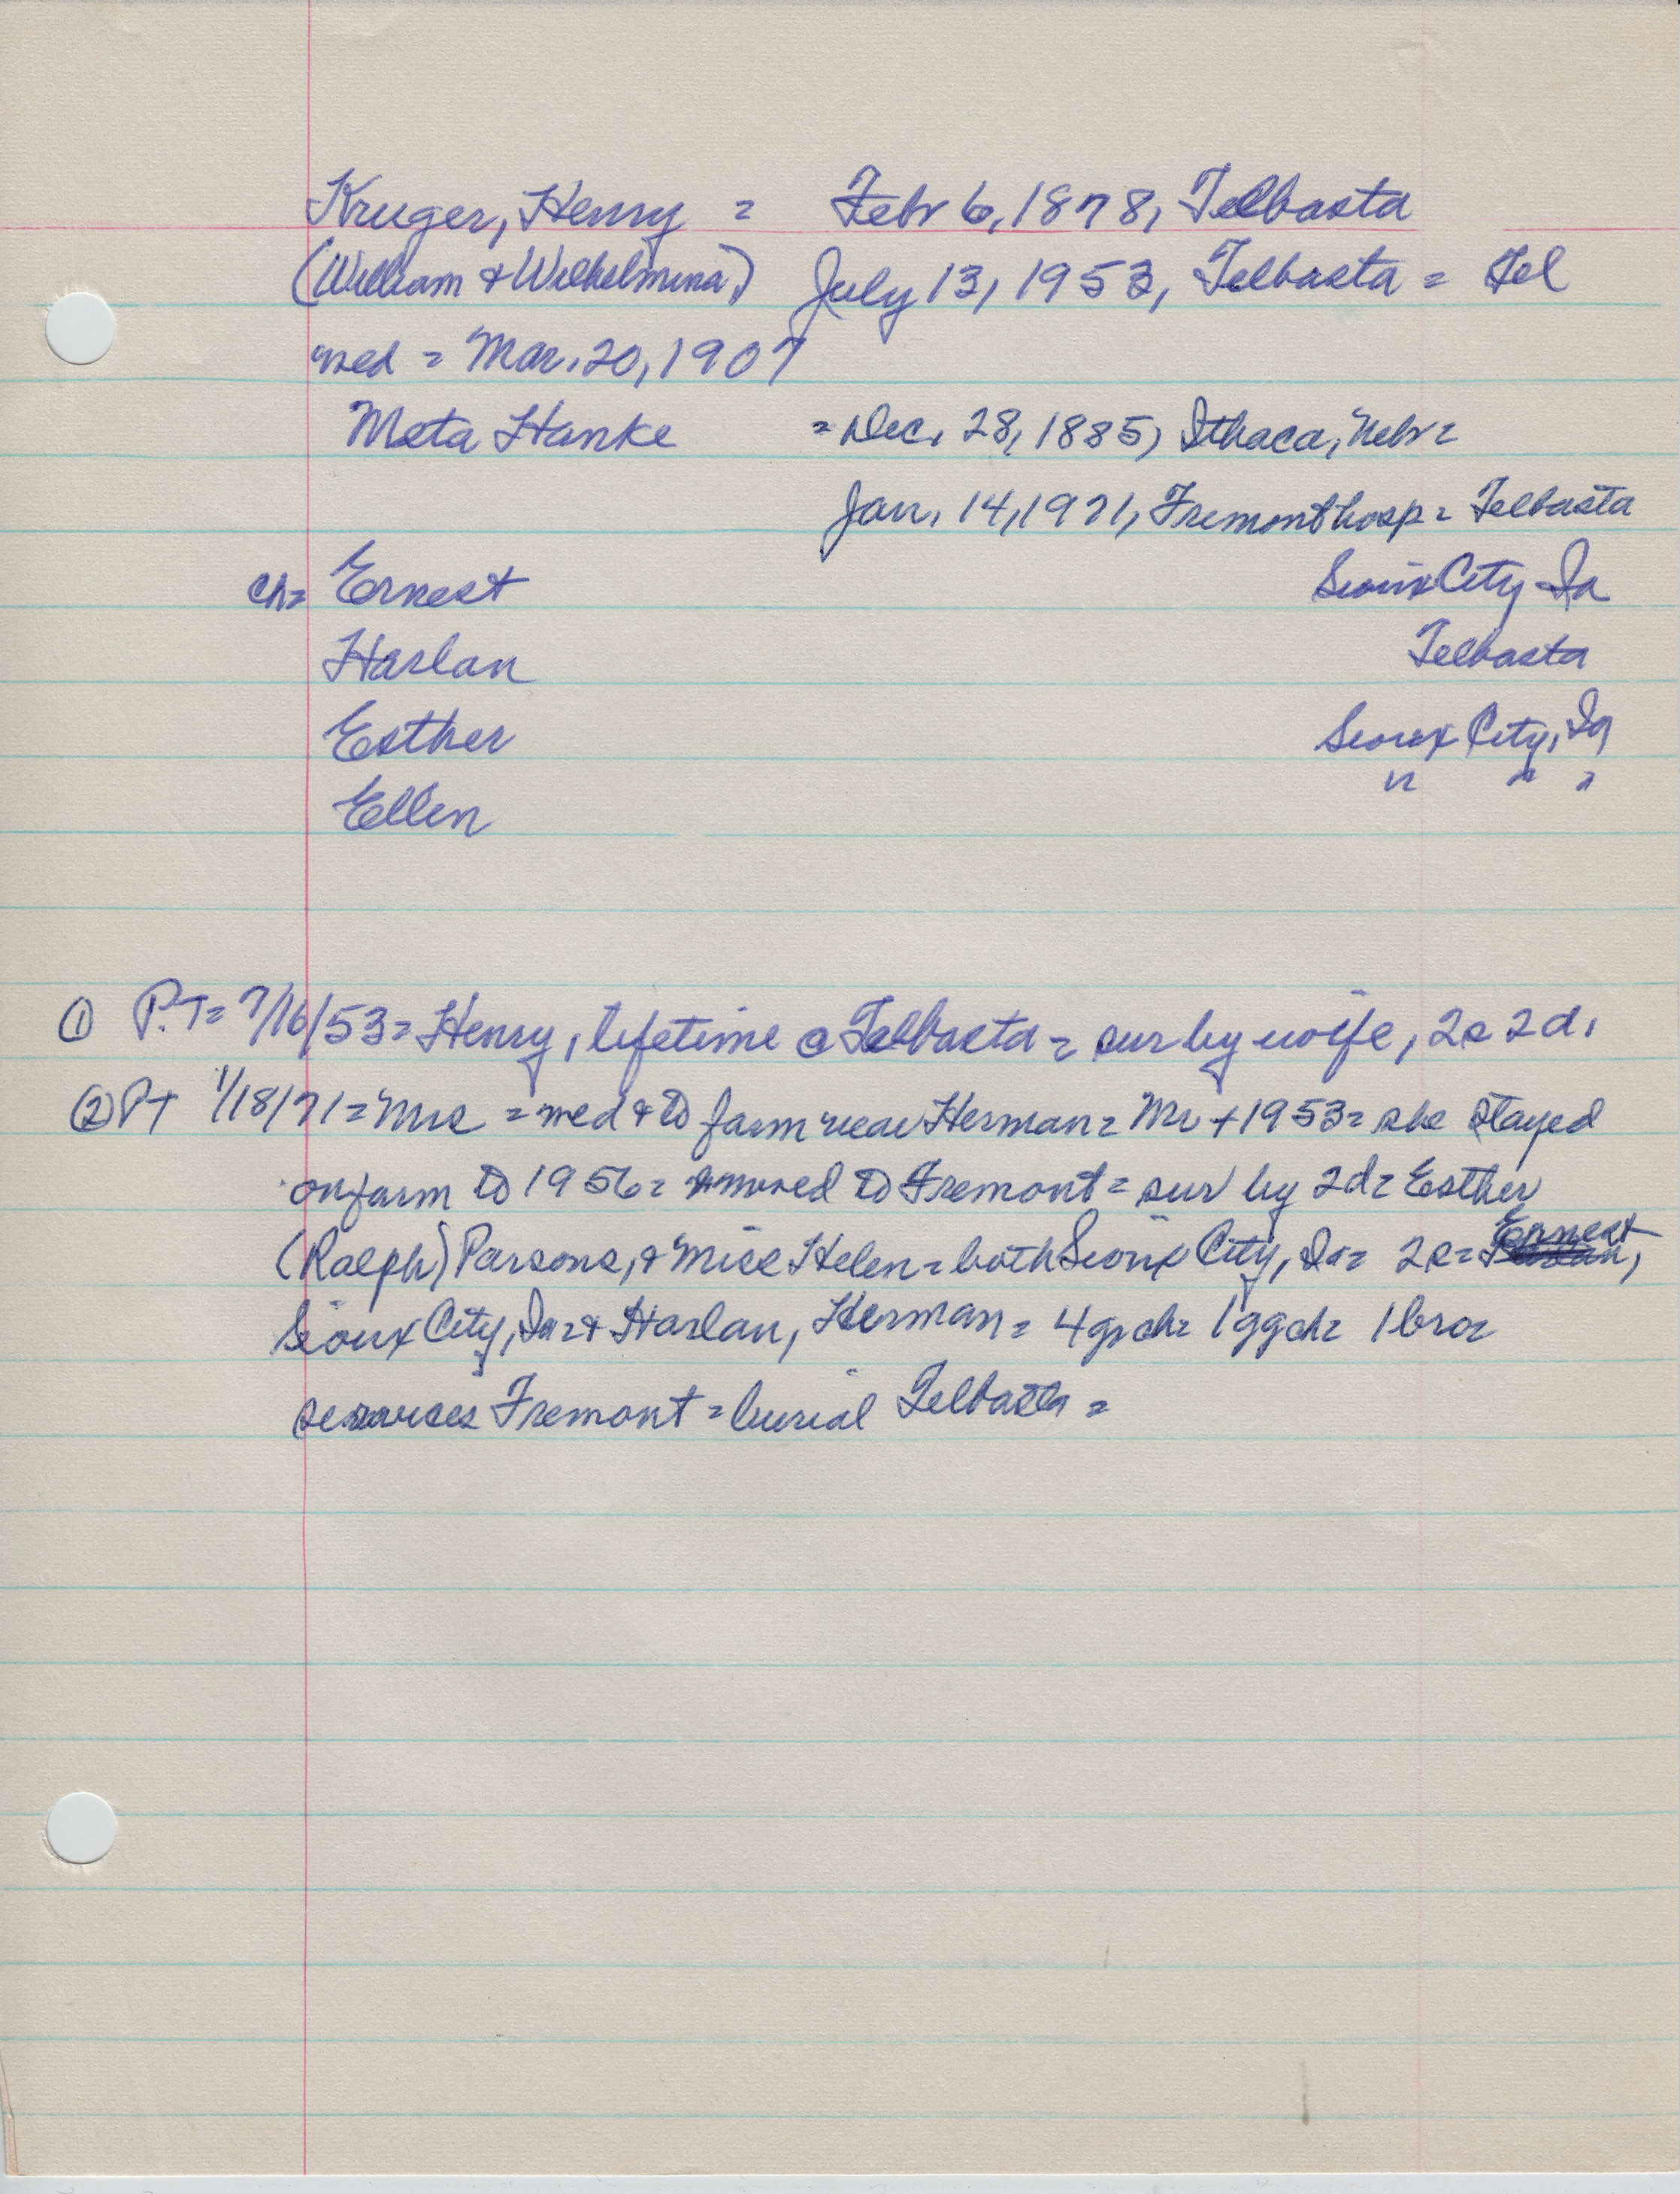 Kruger, Henry = Febr 6, 1878, Telbasta
(William & Wilhelmina) July 13, 1953, Telbasta = Tel
med = Mar. 20, 1907
Meta Hanke = Dec. 28, 1885, Ithaca, Nebr =
Jan. 14, 1971, Fremont hosp = Telbasta
ch= Ernest Sioux City Ia
Harlan Telbasta
Esther Sioux City, Ia
Ellen " " "
① P.T= 7/16/53= Henry, lifetime @ Telbasta = sur by wife, 2s 2d.
② PT 1/18/71= Mrs = med & to farm near Herman= Mr + 1953= she stayed
on farm to 1956= moved to Fremont = sur by 2d= Esther
(Ralph) Parsons, & Miss Helen = both Sioux City, Ia= 2s= Ernest,
Sioux City, Ia= & Harlan, Herman = 4 grch= 1 ggch= 1 bro=
services Fremont = burial Telbasta =